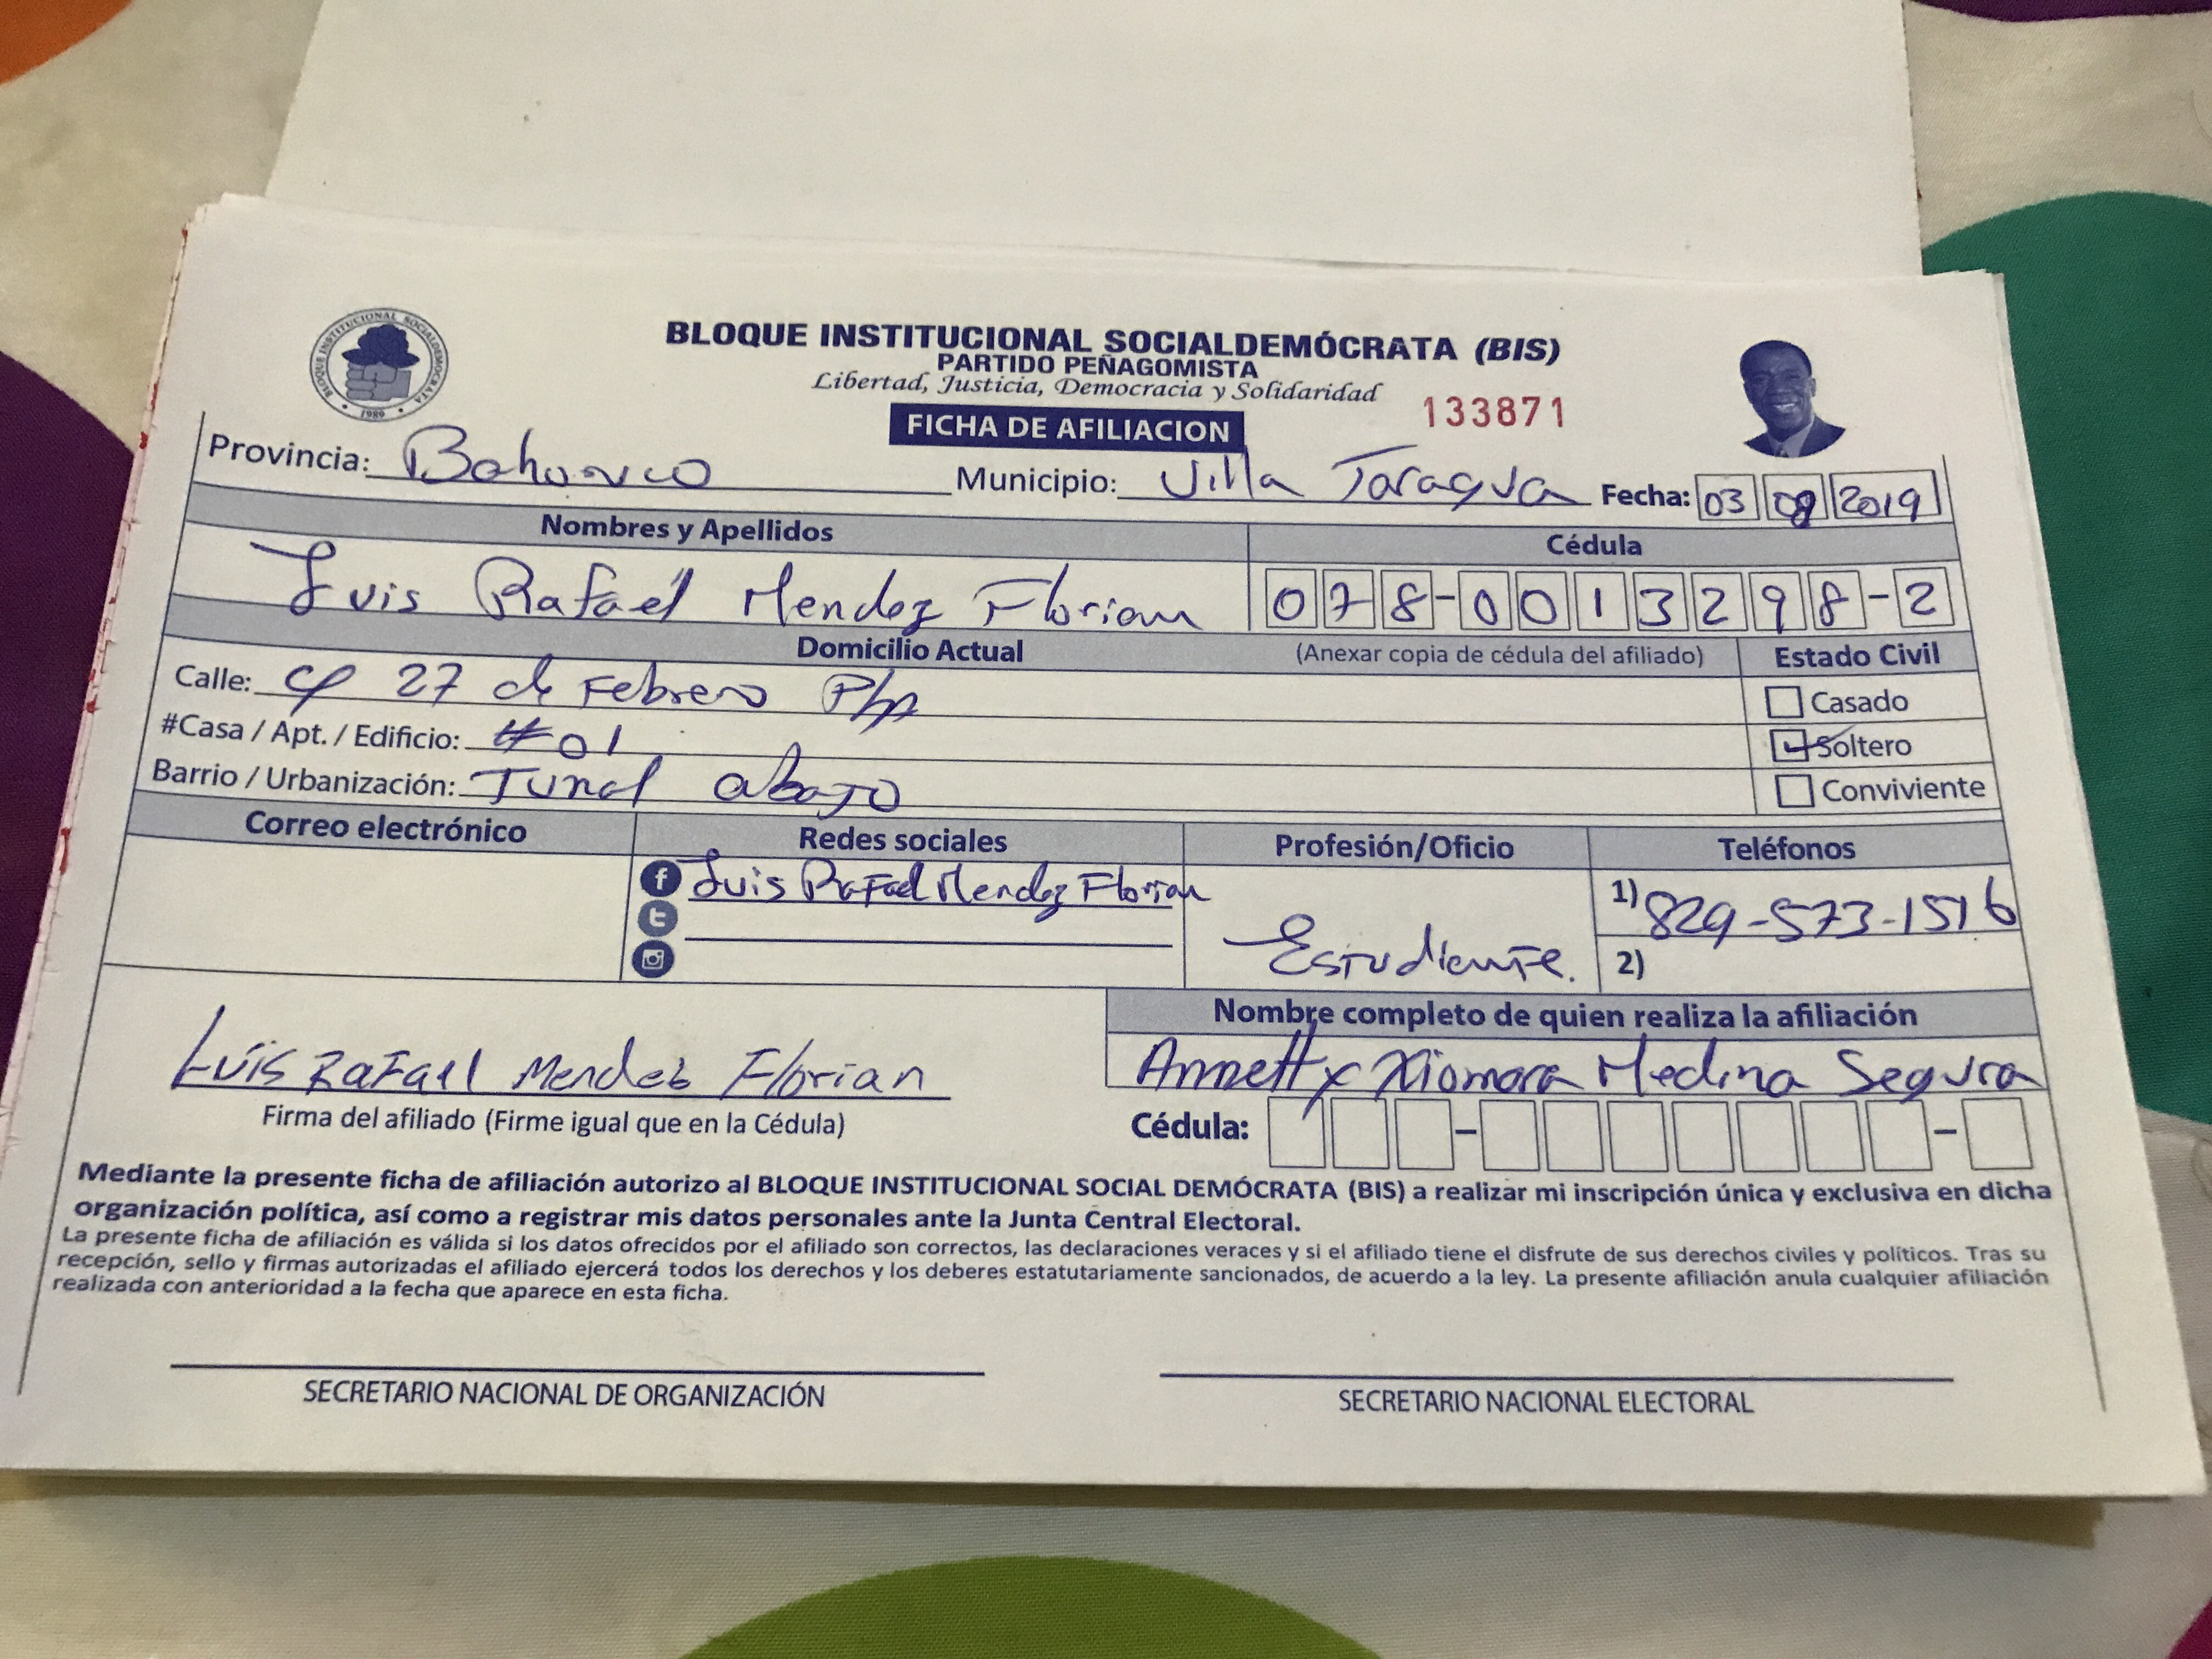 BLOQUE INSTITUCIONAL SOCIALDEMOCRATA
1989
BLOQUE INSTITUCIONAL SOCIALDEMÓCRATA (BIS)
PARTIDO PEÑAGOMISTA
Libertad, Justicia, Democracia y Solidaridad
133871
FICHA DE AFILIACION
Provincia: Bahoruco Municipio: Villa Jaragua Fecha: 03 08 2019
Nombres y Apellidos Cédula
Luis Rafael Mendez Florian 078-0013298-2
Domicilio Actual (Anexar copia de cédula del afiliado) Estado Civil
Calle: 27 de Febrero Casado
#Casa / Apt. / Edificio: #01 Soltero
Barrio / Urbanización: Tunal abajo Conviviente
Correo electrónico Redes sociales Profesión/Oficio Teléfonos
Luis Rafael Mendez Florian Estudiente. 1) 829-573-1516
2)
Nombre completo de quien realiza la afiliación
Luis Rafael Mendez Florian Annetty Xiomara Medina Segura
Firma del afiliado (Firme igual que en la Cédula) Cédula: - -
Mediante la presente ficha de afiliación autorizo al BLOQUE INSTITUCIONAL SOCIAL DEMÓCRATA (BIS) a realizar mi inscripción única y exclusiva en dicha
organización política, así como a registrar mis datos personales ante la Junta Central Electoral.
La presente ficha de afiliación es válida si los datos ofrecidos por el afiliado son correctos, las declaraciones veraces y si el afiliado tiene el disfrute de sus derechos civiles y políticos. Tras su
recepción, sello y firmas autorizadas el afiliado ejercerá todos los derechos y los deberes estatutariamente sancionados, de acuerdo a la ley. La presente afiliación anula cualquier afiliación
realizada con anterioridad a la fecha que aparece en esta ficha.
SECRETARIO NACIONAL DE ORGANIZACIÓN SECRETARIO NACIONAL ELECTORAL